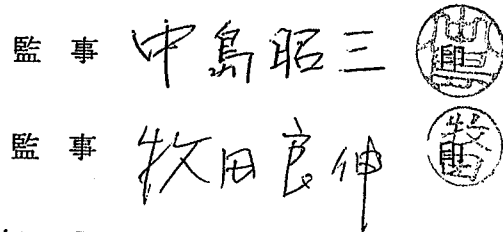 監事 中島昭三
監事 牧田良伸